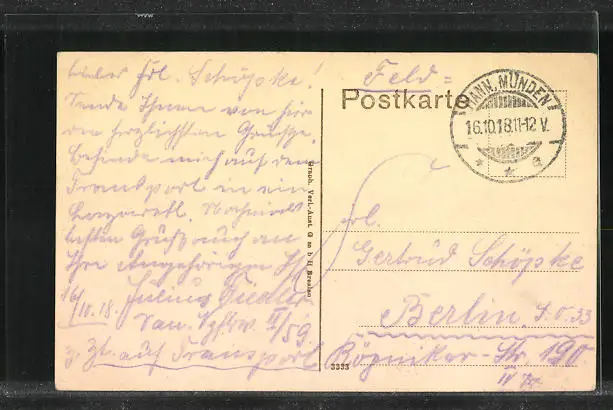 Liebes Frl. Schöpke!
Sende Ihnen von hier
die herzlichsten Grüsse.
Befinde mich auf dem
Transport in ein
Lazarett. Nochmals
besten Gruß auch an
Ihre Angehörigen Ihr
16/10.18. Julius Fiedler
San. Vzfw. II/59.
z. Zt. auf Transport
Graph. Verl.-Anst. G m b H Breslau
Feld=
Postkarte
HANN. MÜNDEN
16.10.18.11-12 V.
* * a
Frl.
Gertrud Schöpke
Berlin, S.O. 33
Köpniker-Str. 190
IV
3333